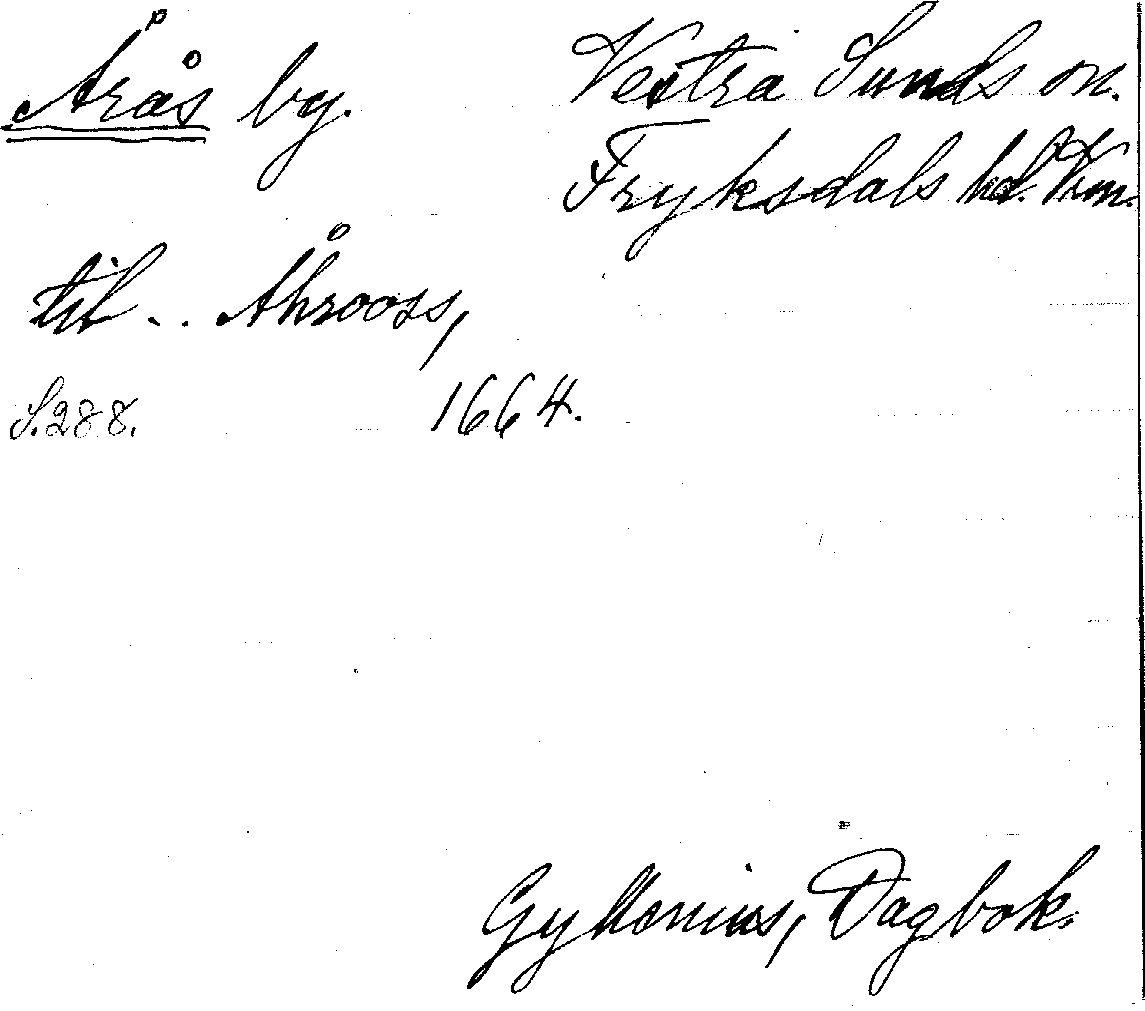 Årås by.
Vestra Sunds sn.
Fryksdals hd. Vrm.
til .. Åhrooss,
S.288. 1664.
Gyllenius, Dagbok.